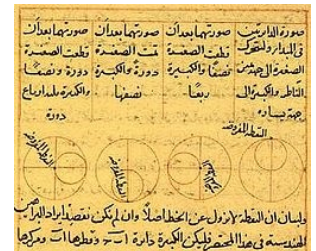 صورة الدائرتين
في المبدأ وتتحرك
الصغيرة الى
والكبيرة الى
جهة يساره
صورتهما بعد أن
قطعت الصغيرة
نصفا والكبيرة
ربعا
صورتهما بعد أن
تمت الصغيرة
دورة والكبيرة
نصفها
صورتهما بعد أن
قطعت الصغيرة
دورة ونصفا
والكبيرة ثلثة ارباع
دورة
النقطة المفروضة
النقطة المفروضة
النقطة المفروضة
ان النقطة لا تزول عن الخط اصلا وان لم يكن نقصد ايراد البراهين
الهندسية في هذا المختصر فليكن الكبيرة دائرة وقطرها ا ب ومركزها